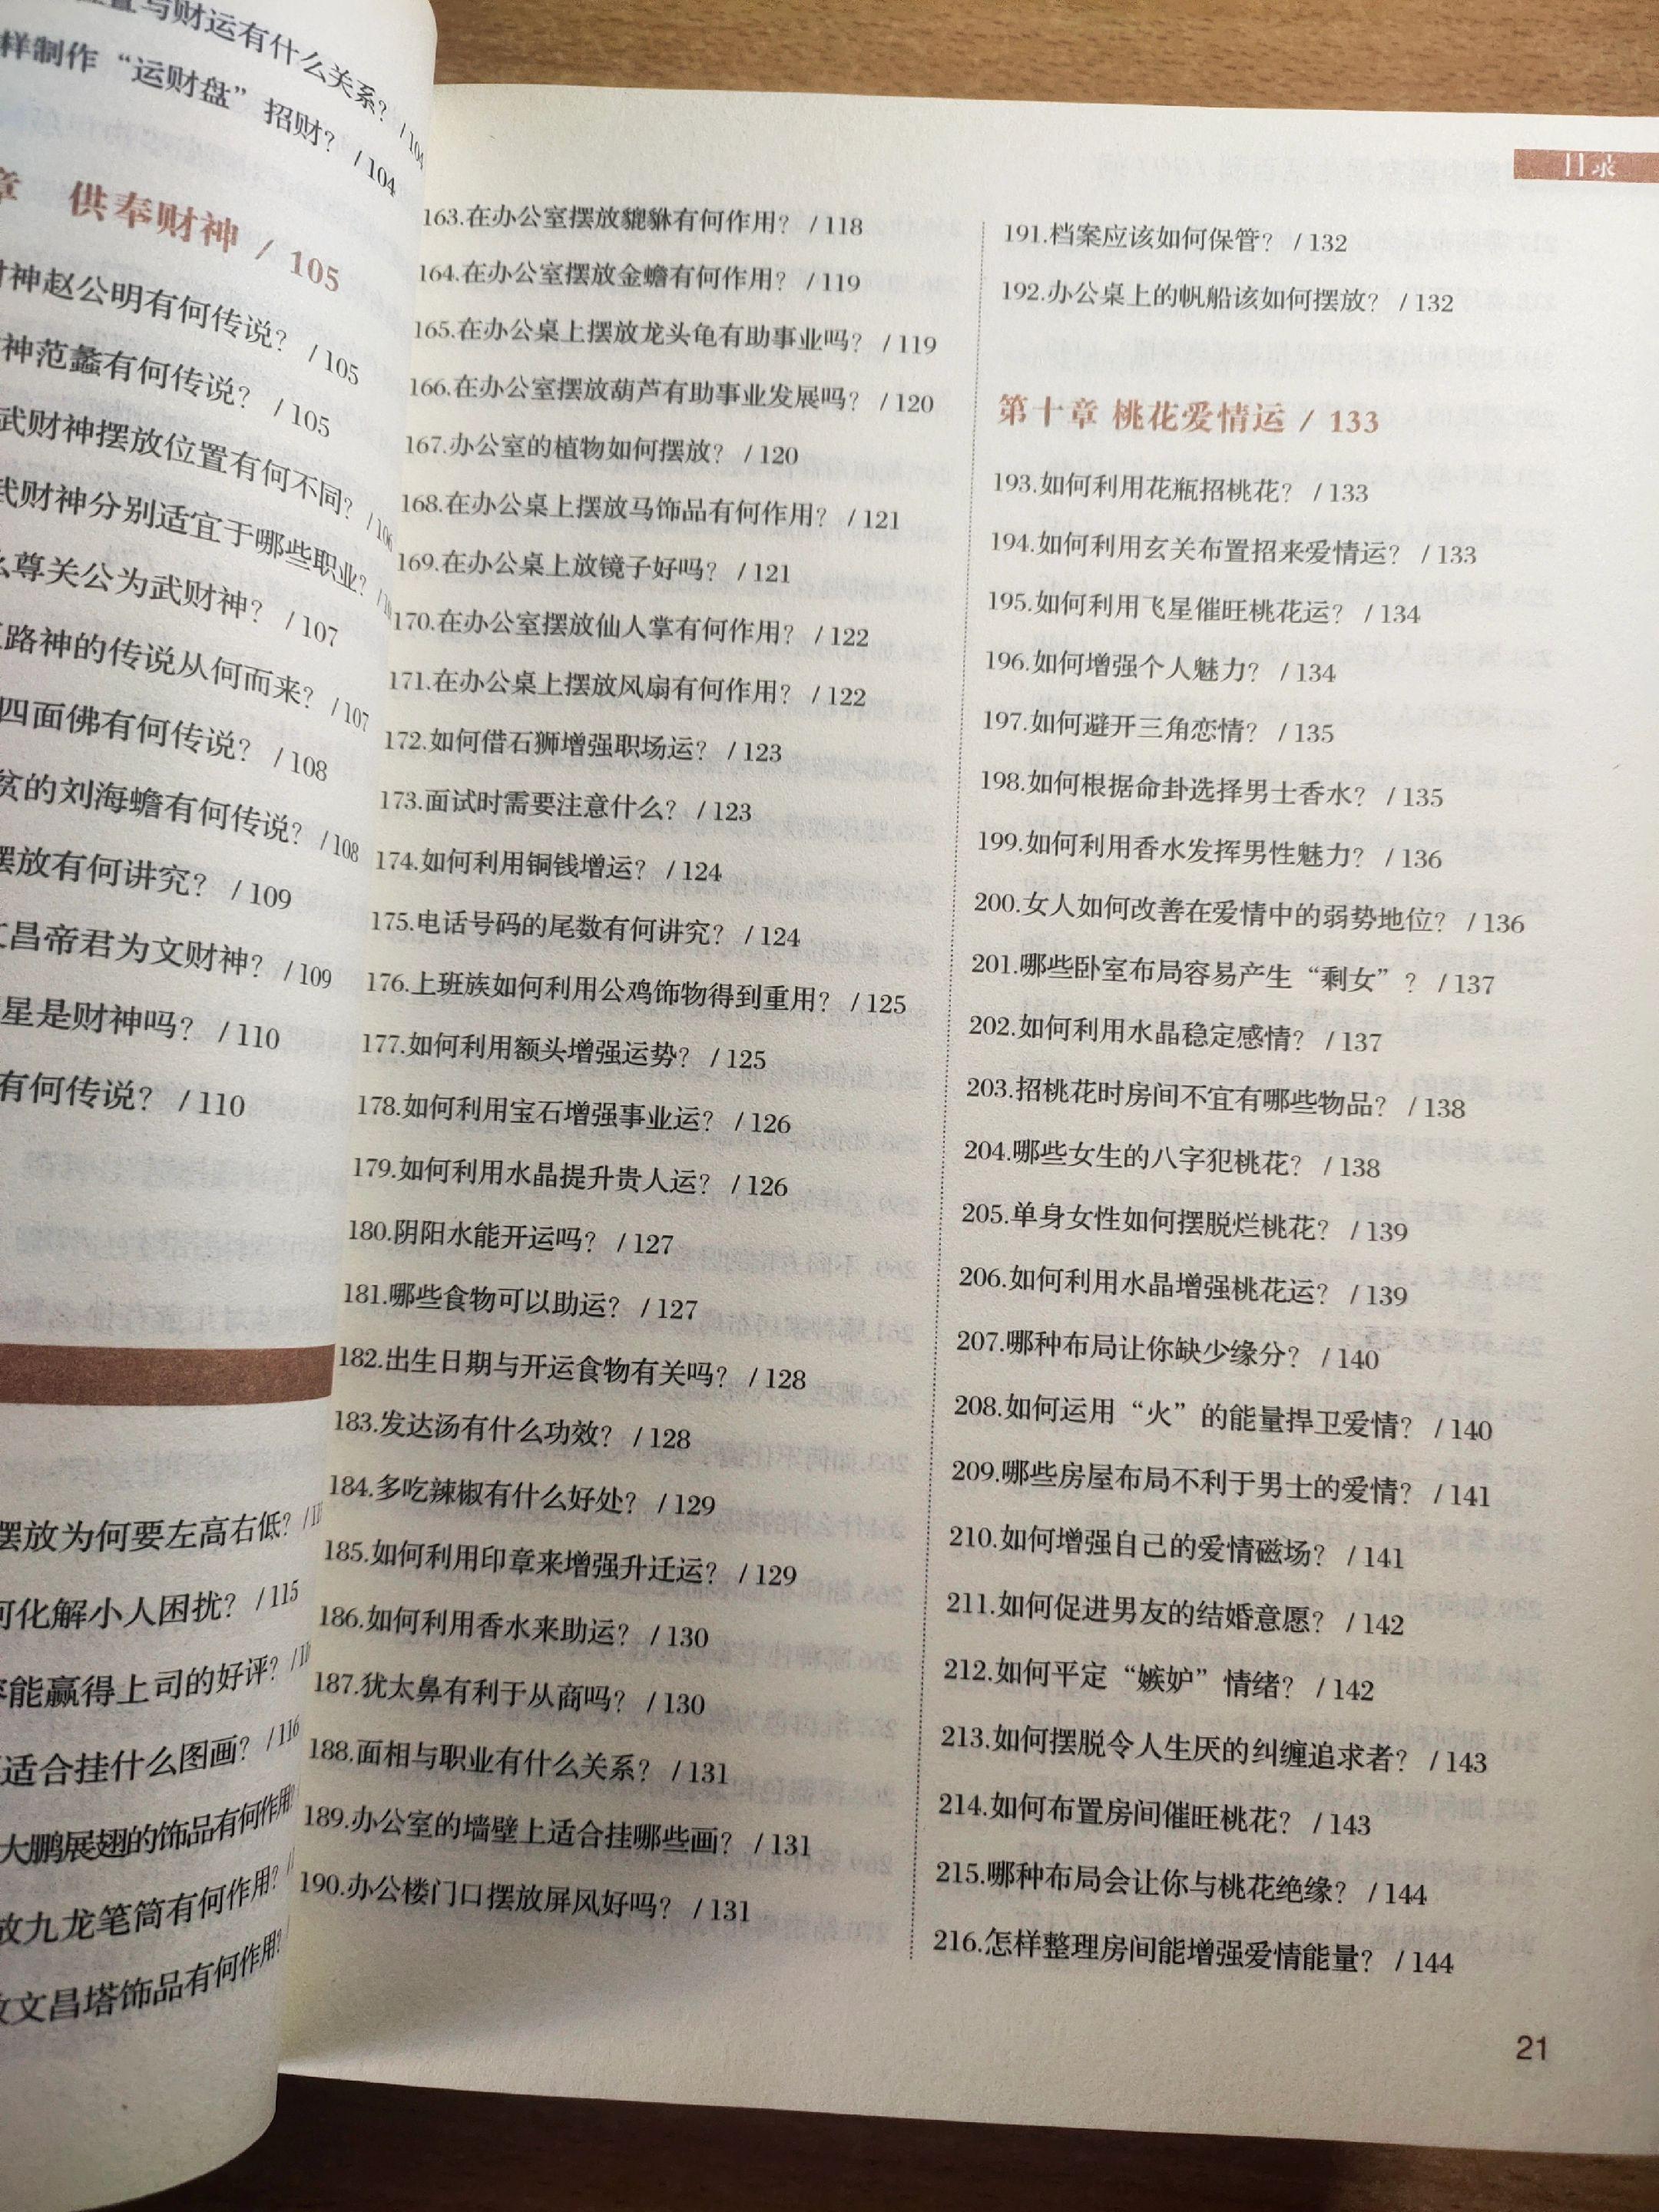 置与财运有什么关系？ / 104
样制作“运财盘”招财？ / 104
章 供奉财神 / 105
财神赵公明有何传说？ / 105
神范蠡有何传说？ / 105
武财神摆放位置有何不同？ / 106
武财神分别适宜于哪些职业？
么尊关公为武财神？ / 107
路神的传说从何而来？ / 107
四面佛有何传说？ / 108
贫的刘海蟾有何传说？ / 108
摆放有何讲究？ / 109
文昌帝君为文财神？ / 109
星是财神吗？ / 110
有何传说？ / 110
摆放为何要左高右低？
何化解小人困扰？ / 115
能赢得上司的好评？
适合挂什么图画？ / 116
大鹏展翅的饰品有何作用
放九龙笔筒有何作用？
文昌塔饰品有何作用？
目录
163.在办公室摆放貔貅有何作用？ / 118
164.在办公室摆放金蟾有何作用？ / 119
165.在办公桌上摆放龙头龟有助事业吗？ / 119
166.在办公室摆放葫芦有助事业发展吗？ / 120
167.办公室的植物如何摆放？ / 120
168.在办公桌上摆放马饰品有何作用？ / 121
169.在办公桌上放镜子好吗？ / 121
170.在办公室摆放仙人掌有何作用？ / 122
171.在办公桌上摆放风扇有何作用？ / 122
172.如何借石狮增强职场运？ / 123
173.面试时需要注意什么？ / 123
174.如何利用铜钱增运？ / 124
175.电话号码的尾数有何讲究？ / 124
176.上班族如何利用公鸡饰物得到重用？ / 125
177.如何利用额头增强运势？ / 125
178.如何利用宝石增强事业运？ / 126
179.如何利用水晶提升贵人运？ / 126
180.阴阳水能开运吗？ / 127
181.哪些食物可以助运？ / 127
182.出生日期与开运食物有关吗？ / 128
183.发达汤有什么功效？ / 128
184.多吃辣椒有什么好处？ / 129
185.如何利用印章来增强升迁运？ / 129
186.如何利用香水来助运？ / 130
187.犹太鼻有利于从商吗？ / 130
188.面相与职业有什么关系？ / 131
189.办公室的墙壁上适合挂哪些画？ / 131
190.办公楼门口摆放屏风好吗？ / 131
191.档案应该如何保管？ / 132
192.办公桌上的帆船该如何摆放？ / 132
第十章 桃花爱情运 / 133
193.如何利用花瓶招桃花？ / 133
194.如何利用玄关布置招来爱情运？ / 133
195.如何利用飞星催旺桃花运？ / 134
196.如何增强个人魅力？ / 134
197.如何避开三角恋情？ / 135
198.如何根据命卦选择男士香水？ / 135
199.如何利用香水发挥男性魅力？ / 136
200.女人如何改善在爱情中的弱势地位？ / 136
201.哪些卧室布局容易产生“剩女”？ / 137
202.如何利用水晶稳定感情？ / 137
203.招桃花时房间不宜有哪些物品？ / 138
204.哪些女生的八字犯桃花？ / 138
205.单身女性如何摆脱烂桃花？ / 139
206.如何利用水晶增强桃花运？ / 139
207.哪种布局让你缺少缘分？ / 140
208.如何运用“火”的能量捍卫爱情？ / 140
209.哪些房屋布局不利于男士的爱情？ / 141
210.如何增强自己的爱情磁场？ / 141
211.如何促进男友的结婚意愿？ / 142
212.如何平定“嫉妒”情绪？ / 142
213.如何摆脱令人生厌的纠缠追求者？ / 143
214.如何布置房间催旺桃花？ / 143
215.哪种布局会让你与桃花绝缘？ / 144
216.怎样整理房间能增强爱情能量？ / 144
21